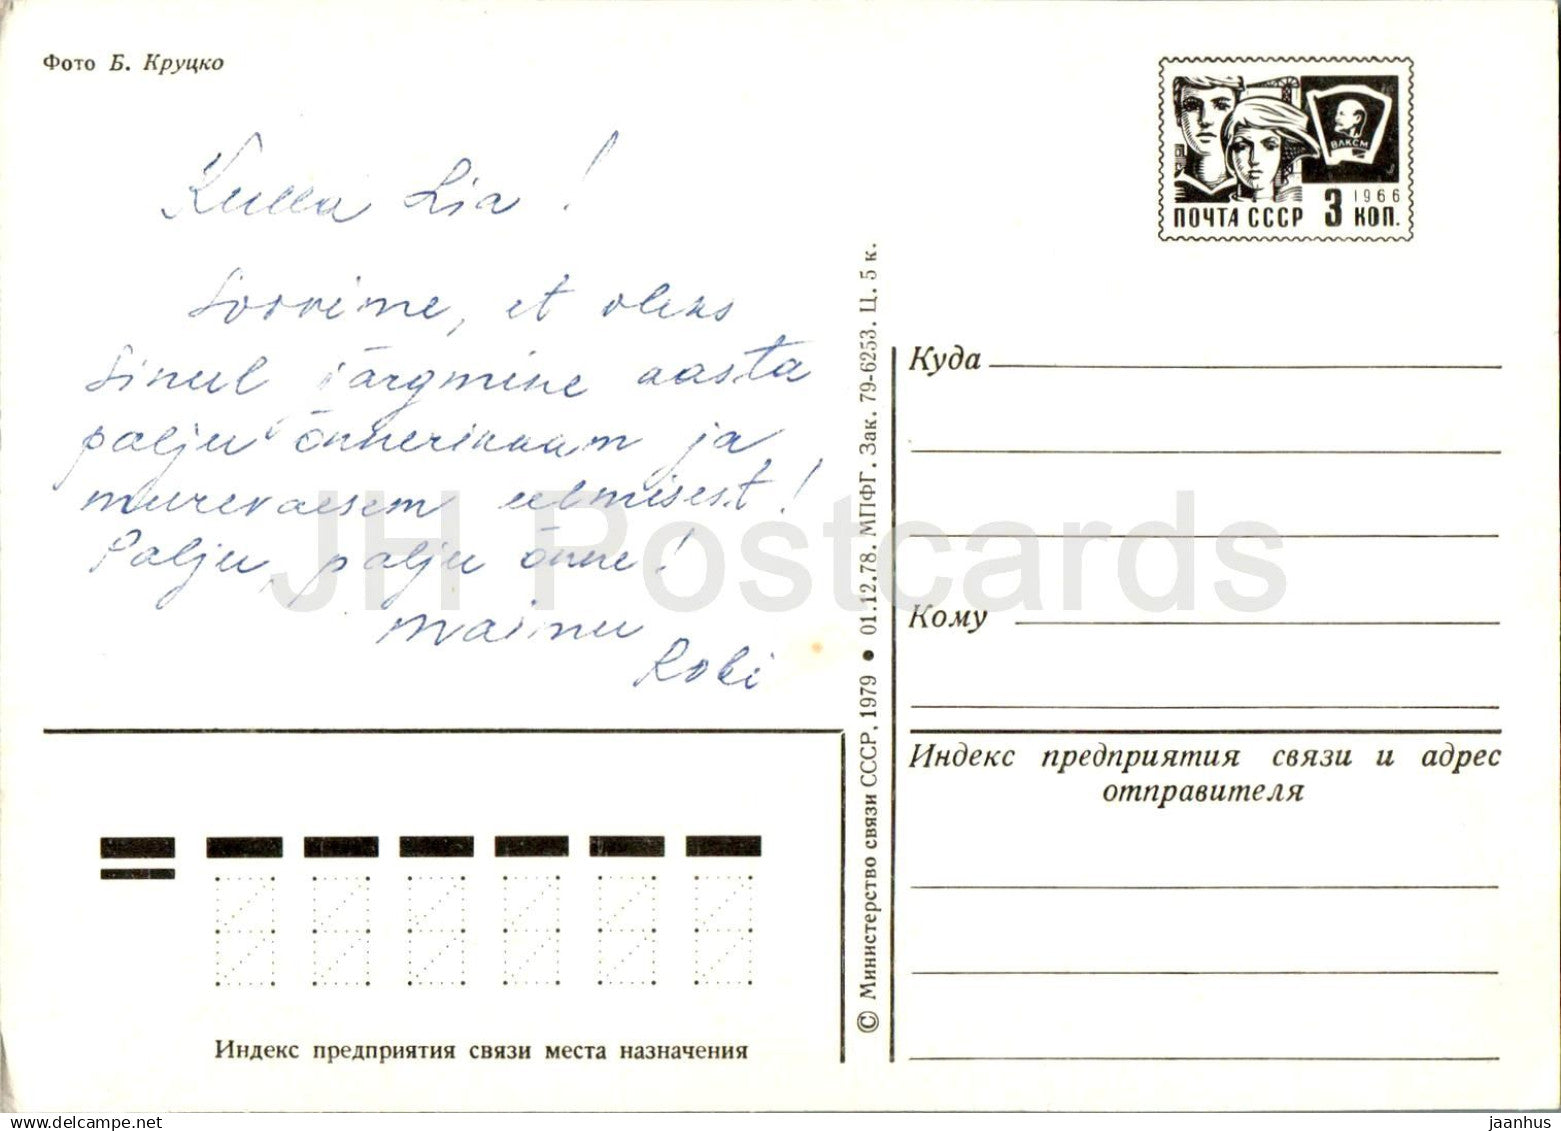 Фото Б. Круцко
Kulla Lia!
Soovime, et oleks
Sinul järgmine aasta
palju õnnerikkam ja
murevaesem eelmisest!
Palju, palju õnne!
Robi
ВЛКСМ
1966
ПОЧТА СССР 3 КОП.
Куда
Кому
Индекс предприятия связи и адрес
отправителя
© Министерство связи СССР, 1979 ● 01.12.78. МПФГ. Зак. 79-6253. Ц. 5 к.
Индекс предприятия связи места назначения
JH Postcards
jaanhus